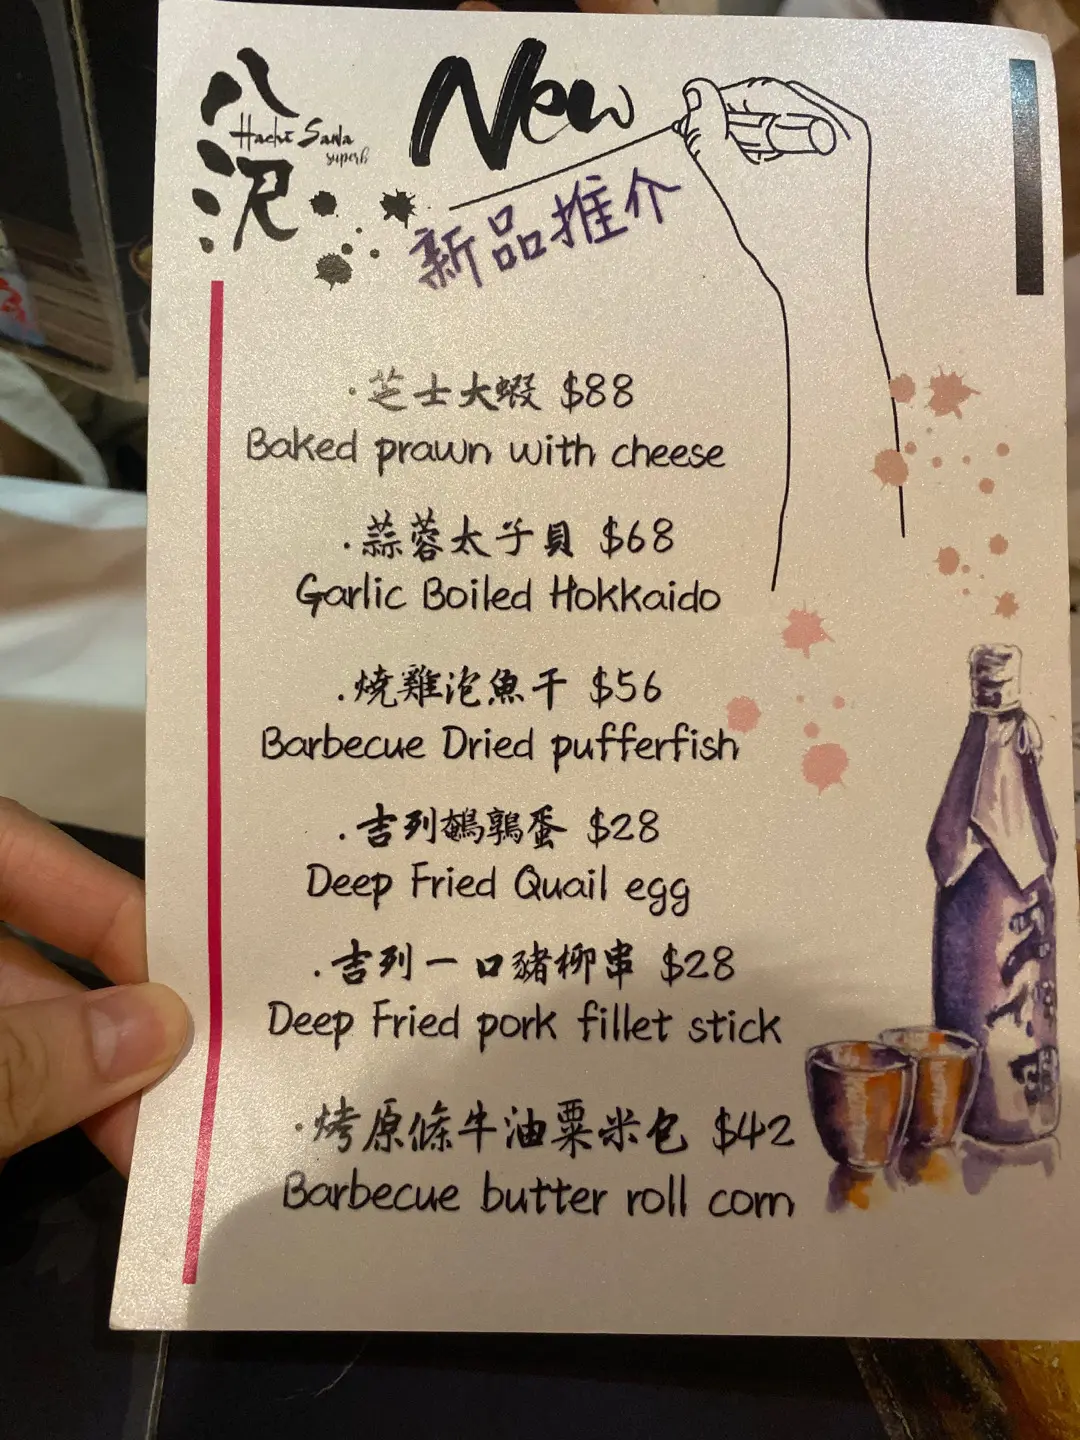 八沢
Hachi Sawa
superb
New
新品推介
·芝士大蝦 $88
Baked prawn with cheese
·蒜蓉太子貝 $68
Garlic Boiled Hokkaido
·燒雞泡魚干 $56
Barbecue Dried pufferfish
·吉列鵪鶉蛋 $28
Deep Fried Quail egg
·吉列一口豬柳串 $28
Deep Fried pork fillet stick
·烤原條牛油粟米包 $42
Barbecue butter roll corn